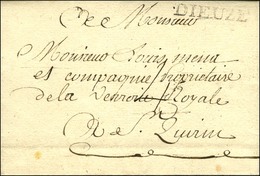 DIEUZE
A Monsieur
Monsieur Louis mena
et compagnie propriétaire
de la Verrerie Royale
De St Quirin